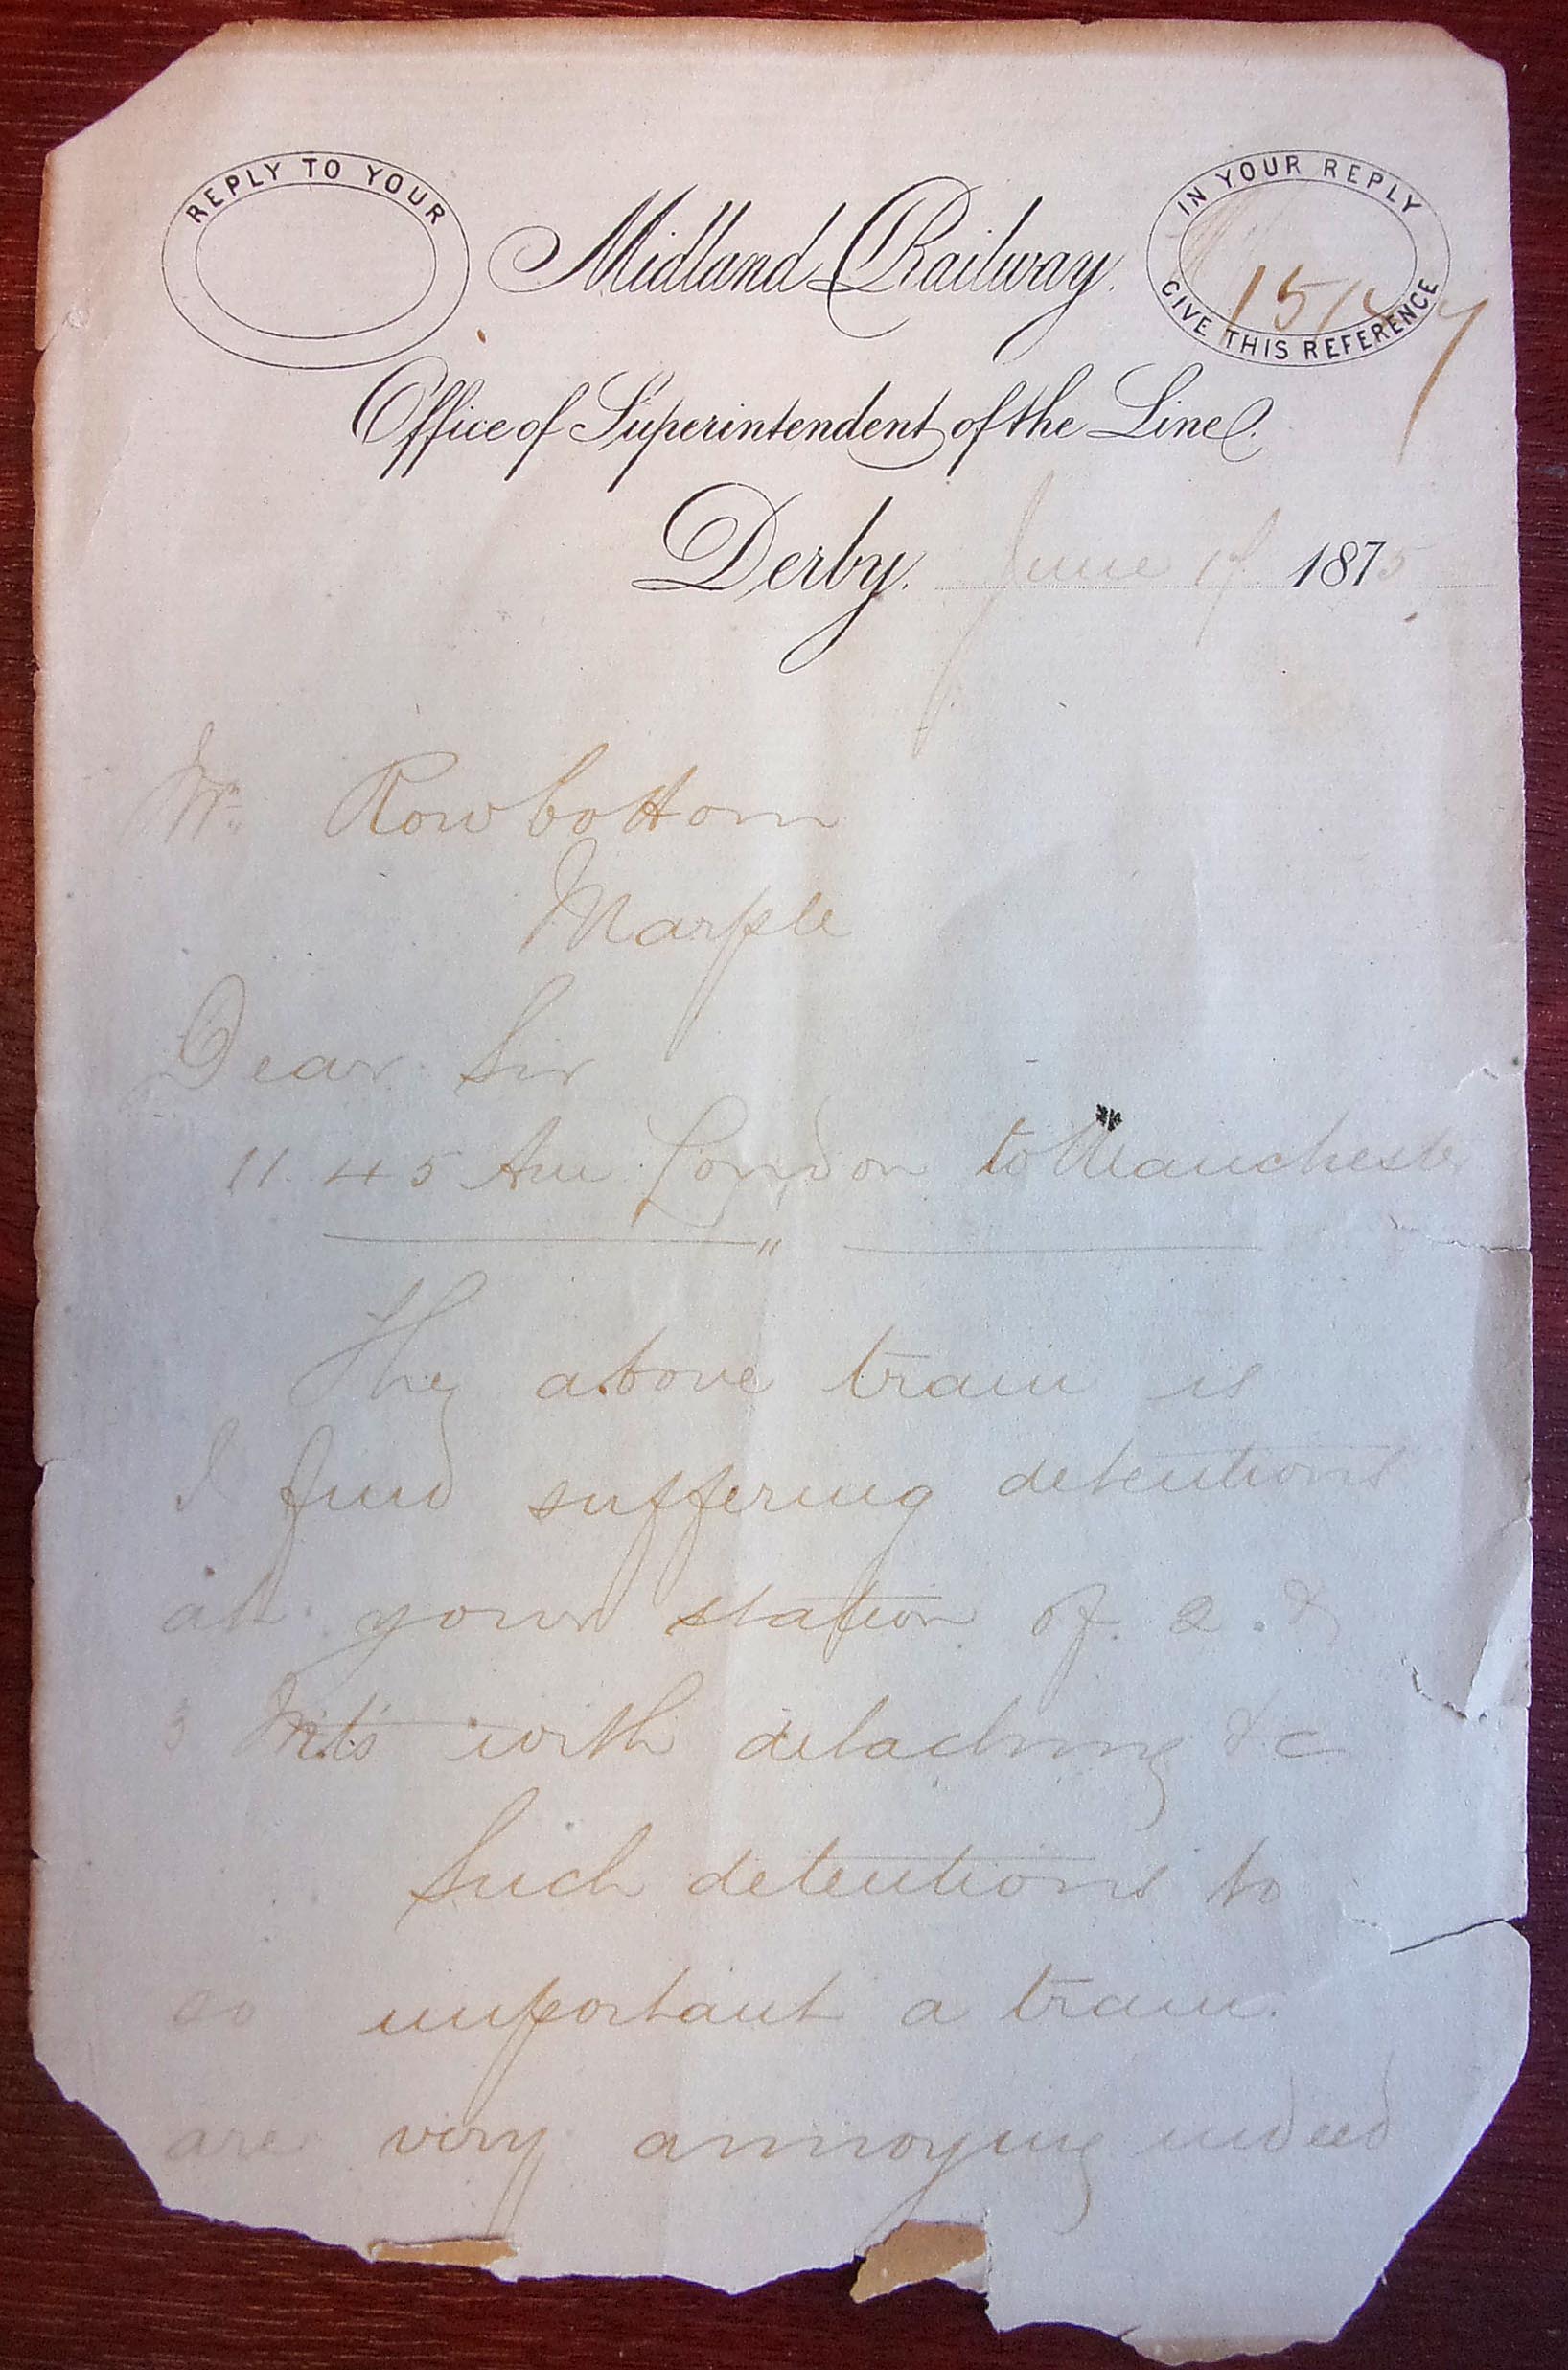 REPLY TO YOUR
IN YOUR REPLY
GIVE THIS REFERENCE
Midland Railway.
Office of Superintendent of the Line.
Derby. June 1875
Mr. Rowbottom
Marple
Dear Sir
11.45 Am London to Manchester
"
The above train is
I find suffering detentions
at your station of 2 . &
3 Mts with detaching &c
Such detentions to
so important a train.
are very annoying indeed